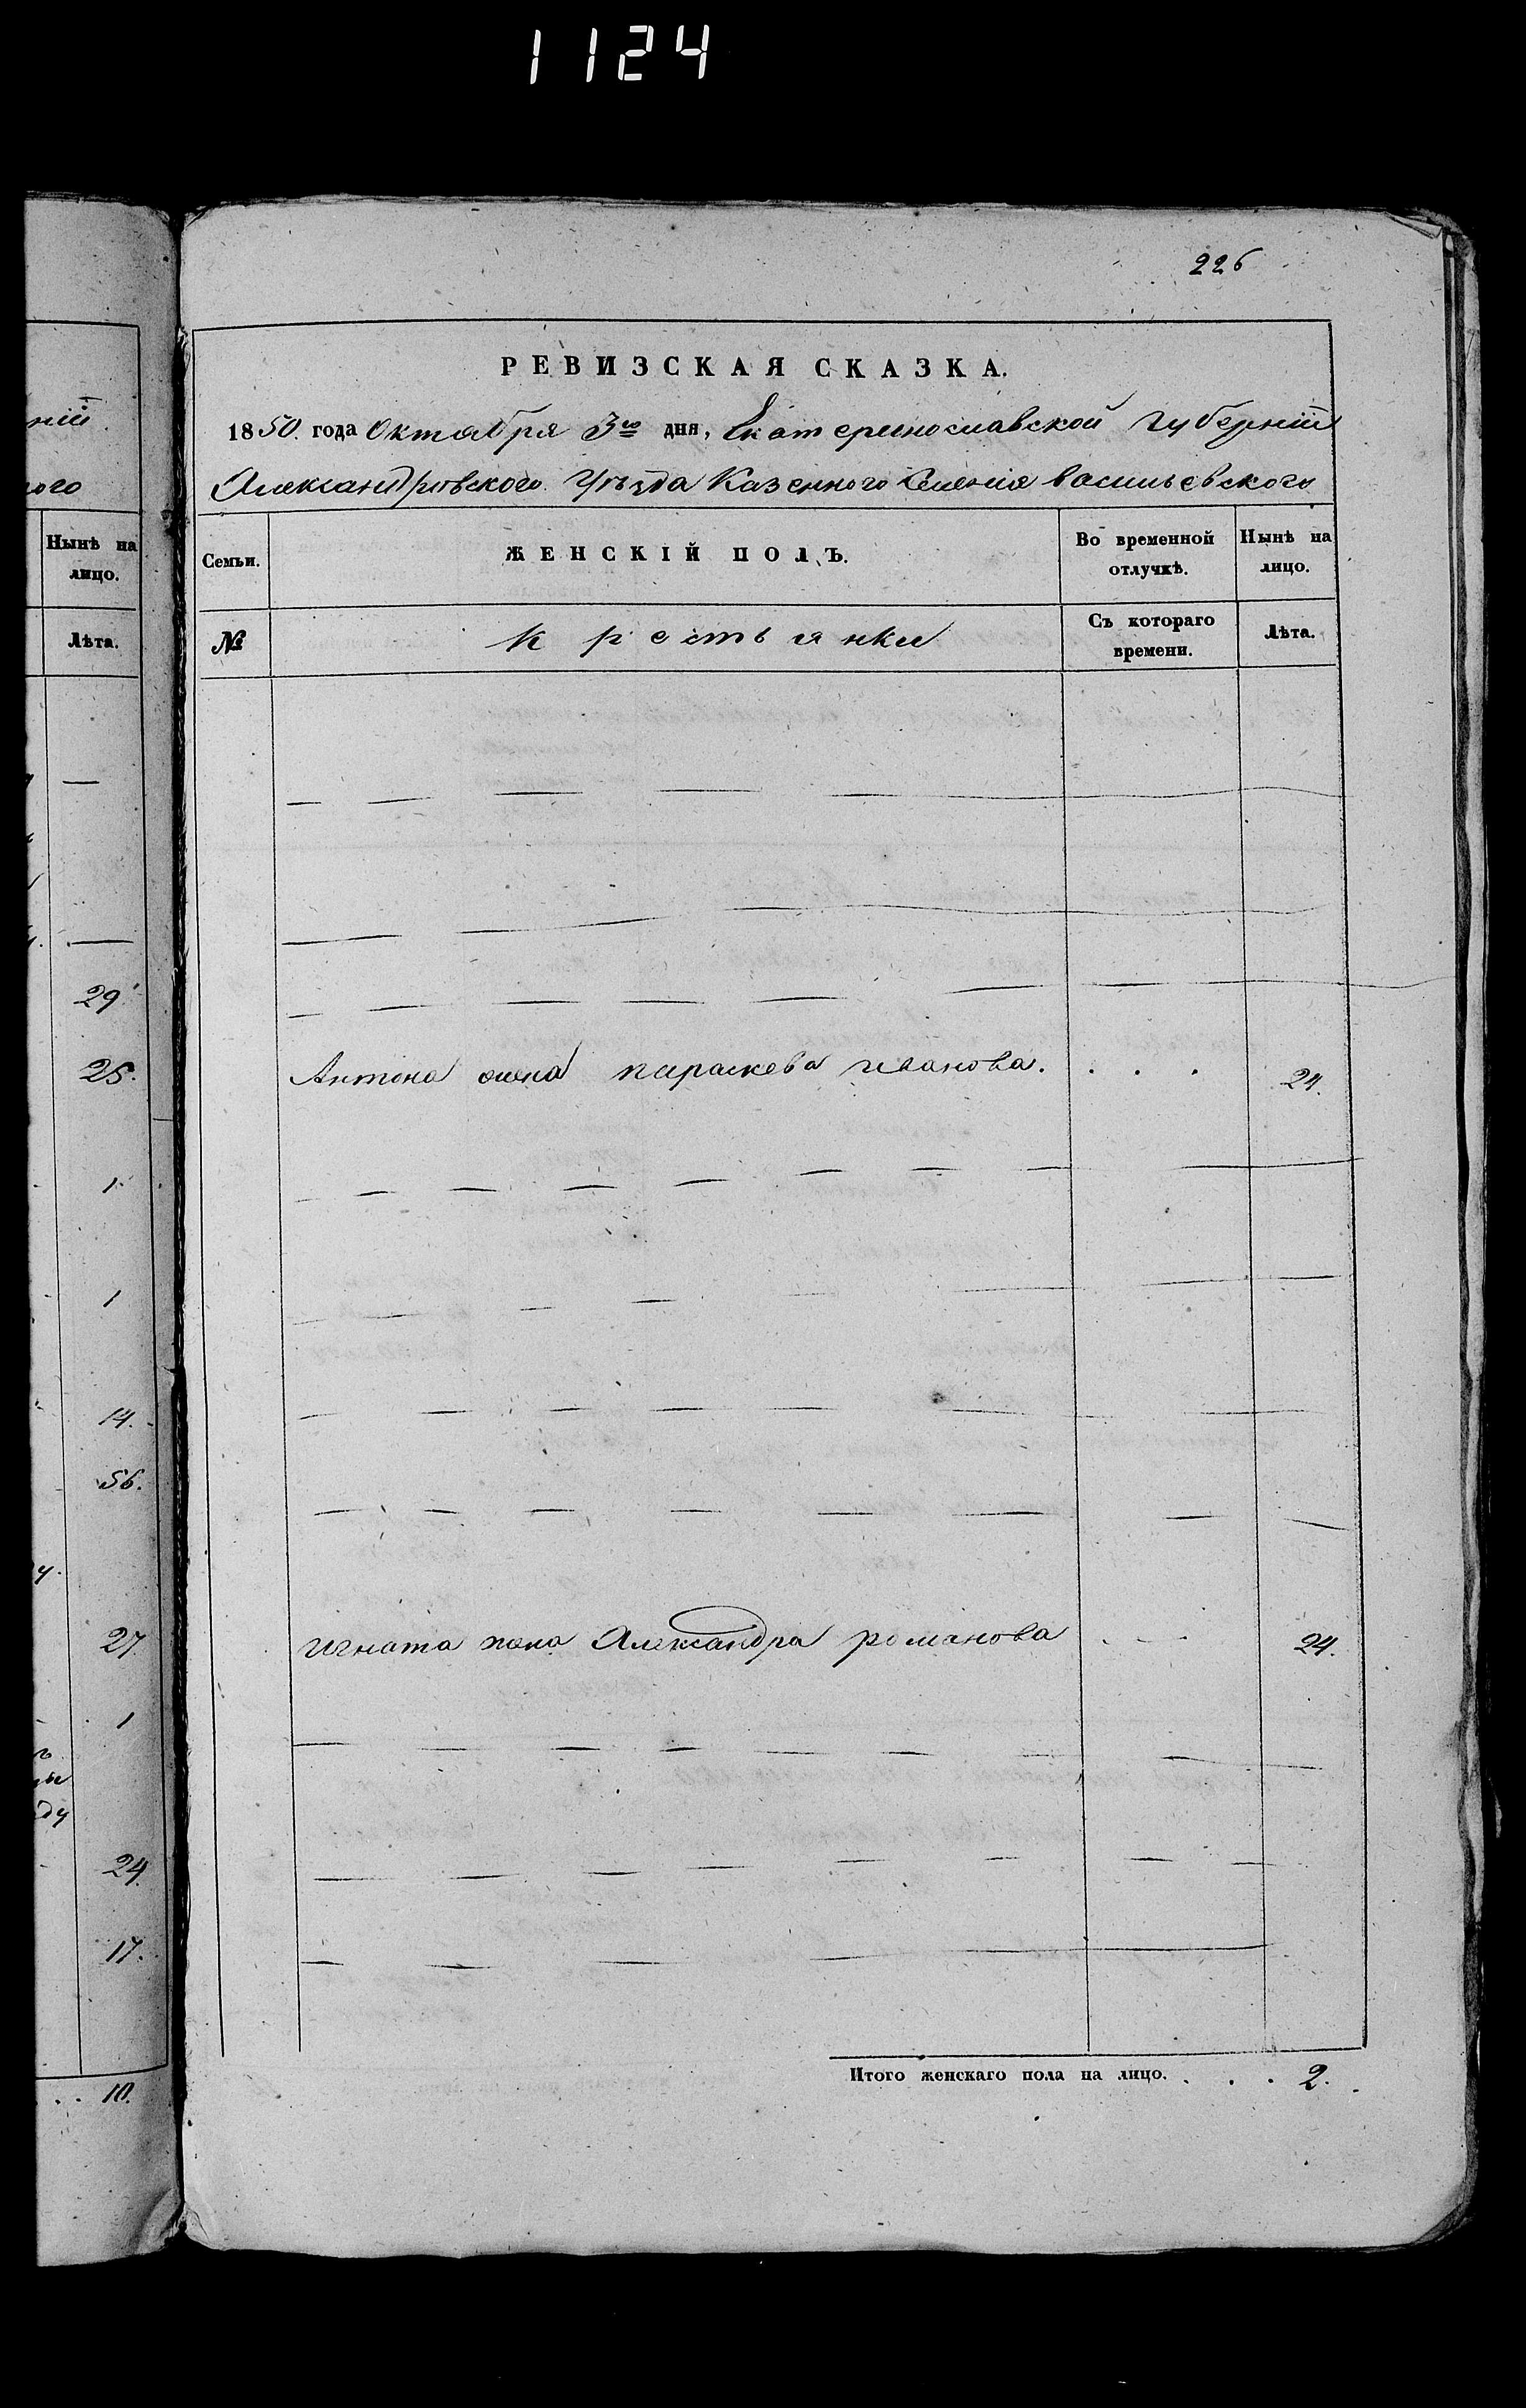 1124
226
РЕВИЗСКАЯ СКАЗКА.
1850. года Октября 3го дня, Екатеринославской губерніи
Александровского Уѣзда Казенного Селенія васильевского
ніи.
ого
Нынѣ на лицо.
Лѣта.
29
25.
1
1
14.
56.
27.
1
24.
17.
10.
Семьи. ЖЕНСКІЙ ПОЛЪ. Во временной отлучкѣ. Нынѣ на лицо.
№ Крестьянки Съ котораго времени. Лѣта.
Антона жена параскева иванова. . . . 24.
игната жена Александра романова 24.
Итого женскаго пола на лицо. . . . 2.